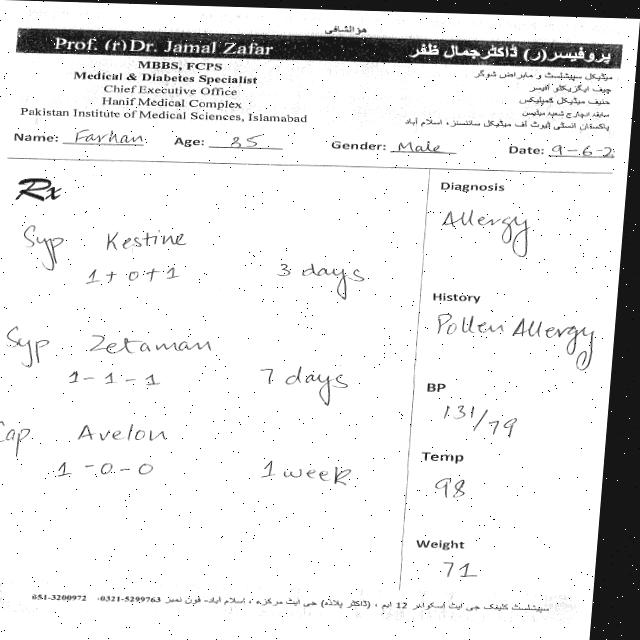 هوالشافی
Prof. (r) Dr. Jamal Zafar
پروفیسر(ر) ڈاکٹر جمال ظفر
MBBS, FCPS
Medical & Diabetes Specialist
Chief Executive Office
Hanif Medical Complex
Pakistan Institute of Medical Sciences, Islamabad
میڈیکل سپیشلسٹ و ماہر امراض شوگر
چیف ایگزیکٹو آفیسر
حنیف میڈیکل کمپلیکس
سابقہ انچارج شعبہ میڈیسن
پاکستان انسٹی ٹیوٹ آف میڈیکل سائنسز، اسلام آباد
Name: Farhan Age: 35 Gender: Male Date: 9-6-2
Rx
Syp Kestine
1+0+1 3 days
Syp Zetaman
1-1-1 7 days
Cap Avelon
1-0-0 1 week
Diagnosis
Allergy
History
Pollen Allergy
BP
131/79
Temp
98
Weight
71
سپیشلسٹ کلینک جی ایٹ اسکوائر 12 ایم ، (ڈاکٹر پلازہ) جی ایٹ مرکز، اسلام آباد۔ فون نمبز 0321-5299763 051-3200972